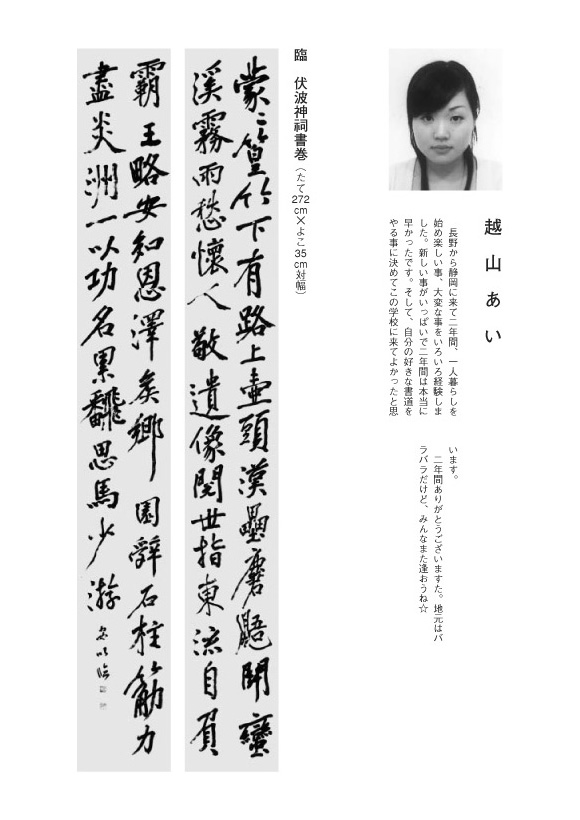 越山あい
長野から静岡に来て二年間、一人暮らしを
始め楽しい事、大変な事をいろいろ経験しま
した。新しい事がいっぱいで二年間は本当に
早かったです。そして、自分の好きな書道を
やる事に決めてこの学校に来てよかったと思
います。
二年間ありがとうございますた。地元はバ
ラバラだけど、みんなまた逢おうね☆
臨 伏波神祠書巻（たて272cm×よこ35cm対幅）
蒙〻篁竹下有路上壷頭漢壘麏鼯鬪蠻
溪霧雨愁懷人敬遺像閲世指東流自負
霸王略安知恩澤矦鄉園辭石柱筋力
盡炎洲一以功名累翻思馬少游